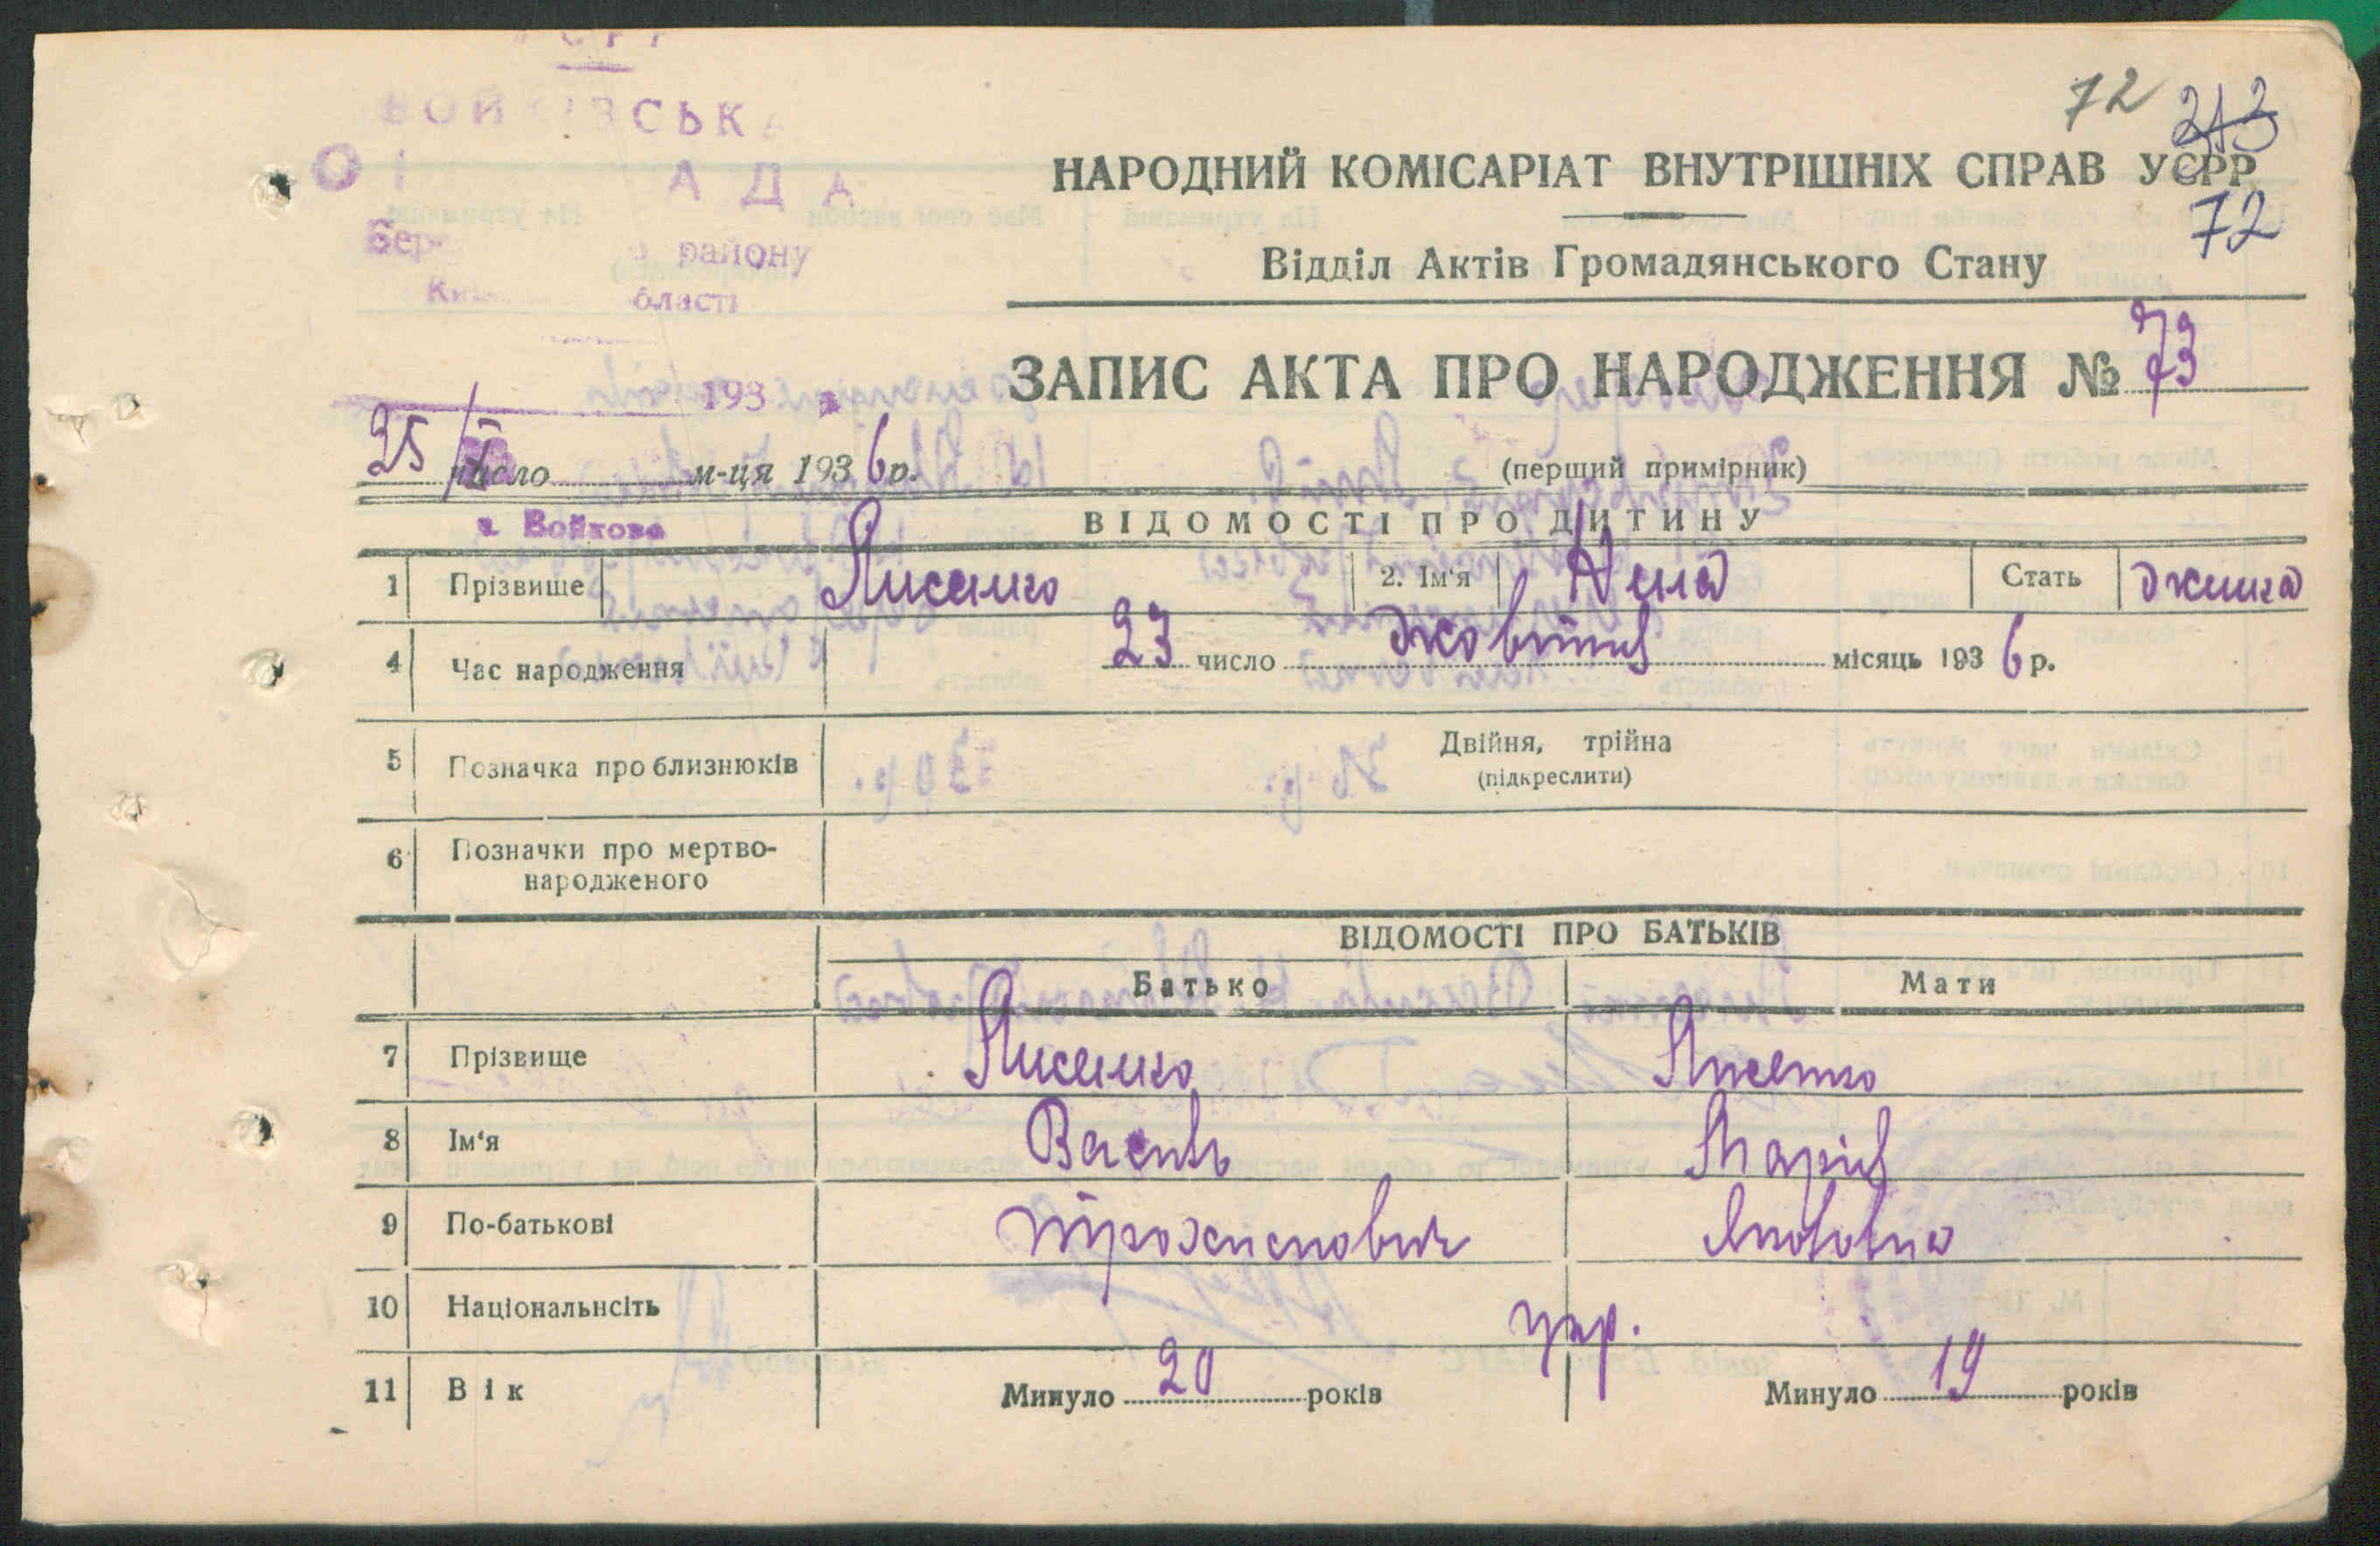 72
213
НАРОДНИЙ КОМІСАРІАТ ВНУТРІШНІХ СПРАВ УСРР
72
Відділ Актів Громадянського Стану
АДА
району
193
ЗАПИС АКТА ПРО НАРОДЖЕННЯ № 73
25/X число м-ця 1936 р.
(перший примірник)
с Войкове
ВІДОМОСТІ ПРО ДИТИНУ
1 Прізвище Лисенко 2. Ім'я Нена Стать жінка
4 Час народження 23 число жовтня місяць 1936 р.
5 Позначка про близнюків Двійня, трійна
(підкреслити)
6 Позначки про мертво-
народженого
ВІДОМОСТІ ПРО БАТЬКІВ
Батько Мати
7 Прізвище Лисенко Лисенко
8 Ім'я Василь Марія
9 По-батькові Трохимович Якововна
10 Національнсіть укр.
11 Вік Минуло 20 років Минуло 19 років